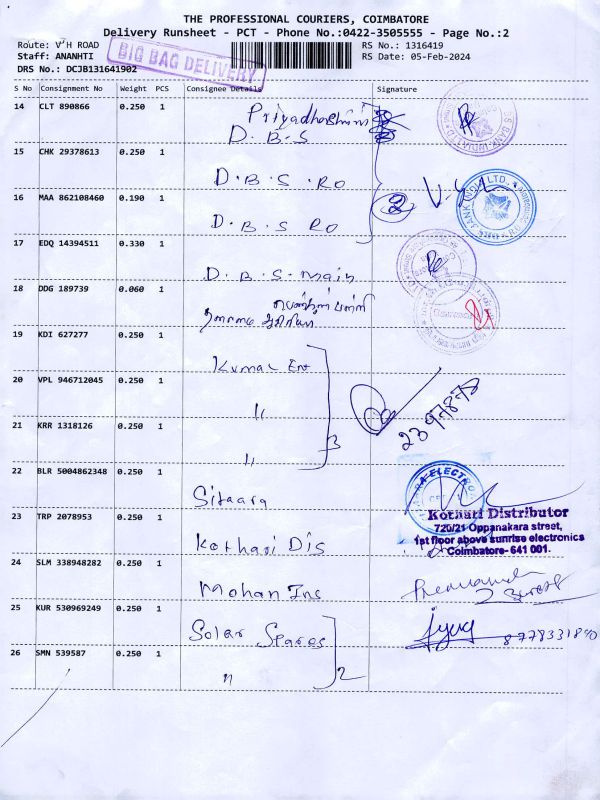 THE PROFESSIONAL COURIERS, COIMBATORE
Delivery Runsheet - PCT - Phone No.:0422-3505555 - Page No.:2
Route: V'H ROAD
RS No.: 1316419
Staff: ANANHTI
RS Date: 05-Feb-2024
BIG BAG DELIVERY
DRS No.: DCJB131641902
S No Consignment No Weight PCS Consignee Details Signature
14 CLT 890866 0.250 1 Priyadharshini
D.B.S
15 CHK 29378613 0.250 1
D.B.S.RO
16 MAA 862108460 0.190 1
D.B.S RO
17 EDQ 14394511 0.330 1
D.B.S.Main
18 DDG 189739 0.060 1
19 KDI 627277 0.250 1
Kumar Ent
20 VPL 946712045 0.250 1
21 KRR 1318126 0.250 1
3
22 BLR 5004862348 0.250 1
Sitaara
23 TRP 2078953 0.250 1
Kothari Dis
Kothari Distributor
720/21 Oppanakara street,
1st floor above sunrise electronics
Coimbatore- 641 001.
24 SLM 338948282 0.250 1
Mohan Ins
25 KUR 530969249 0.250 1
Solar Spares
8778331890
26 SMN 539587 0.250 1
"
2